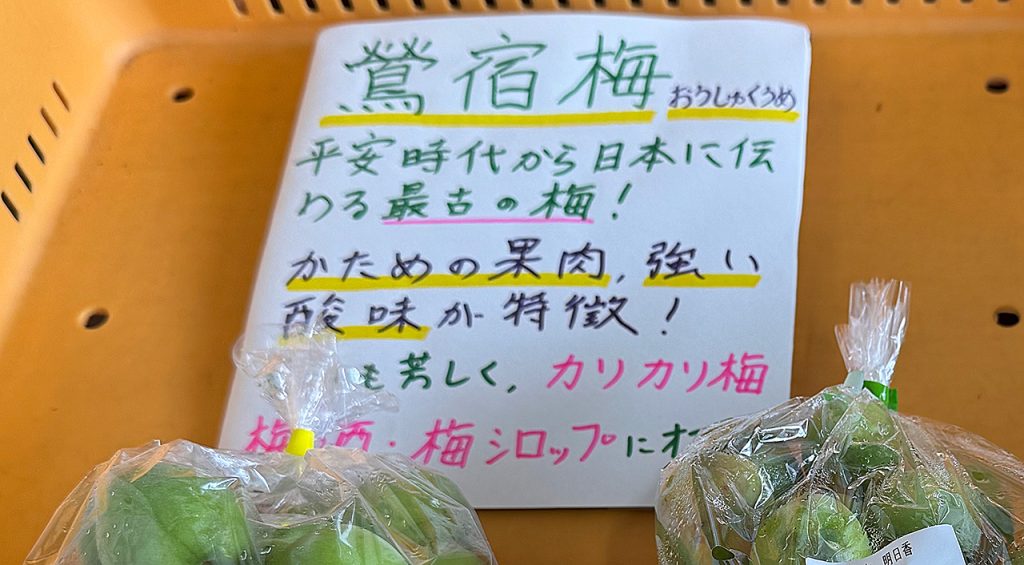 鶯宿梅 おうしゅくうめ
平安時代から日本に伝
わる最古の梅!
かための果肉,強い
酸味が特徴!
も芳しく,カリカリ梅
梅酒・梅シロップに
明日香